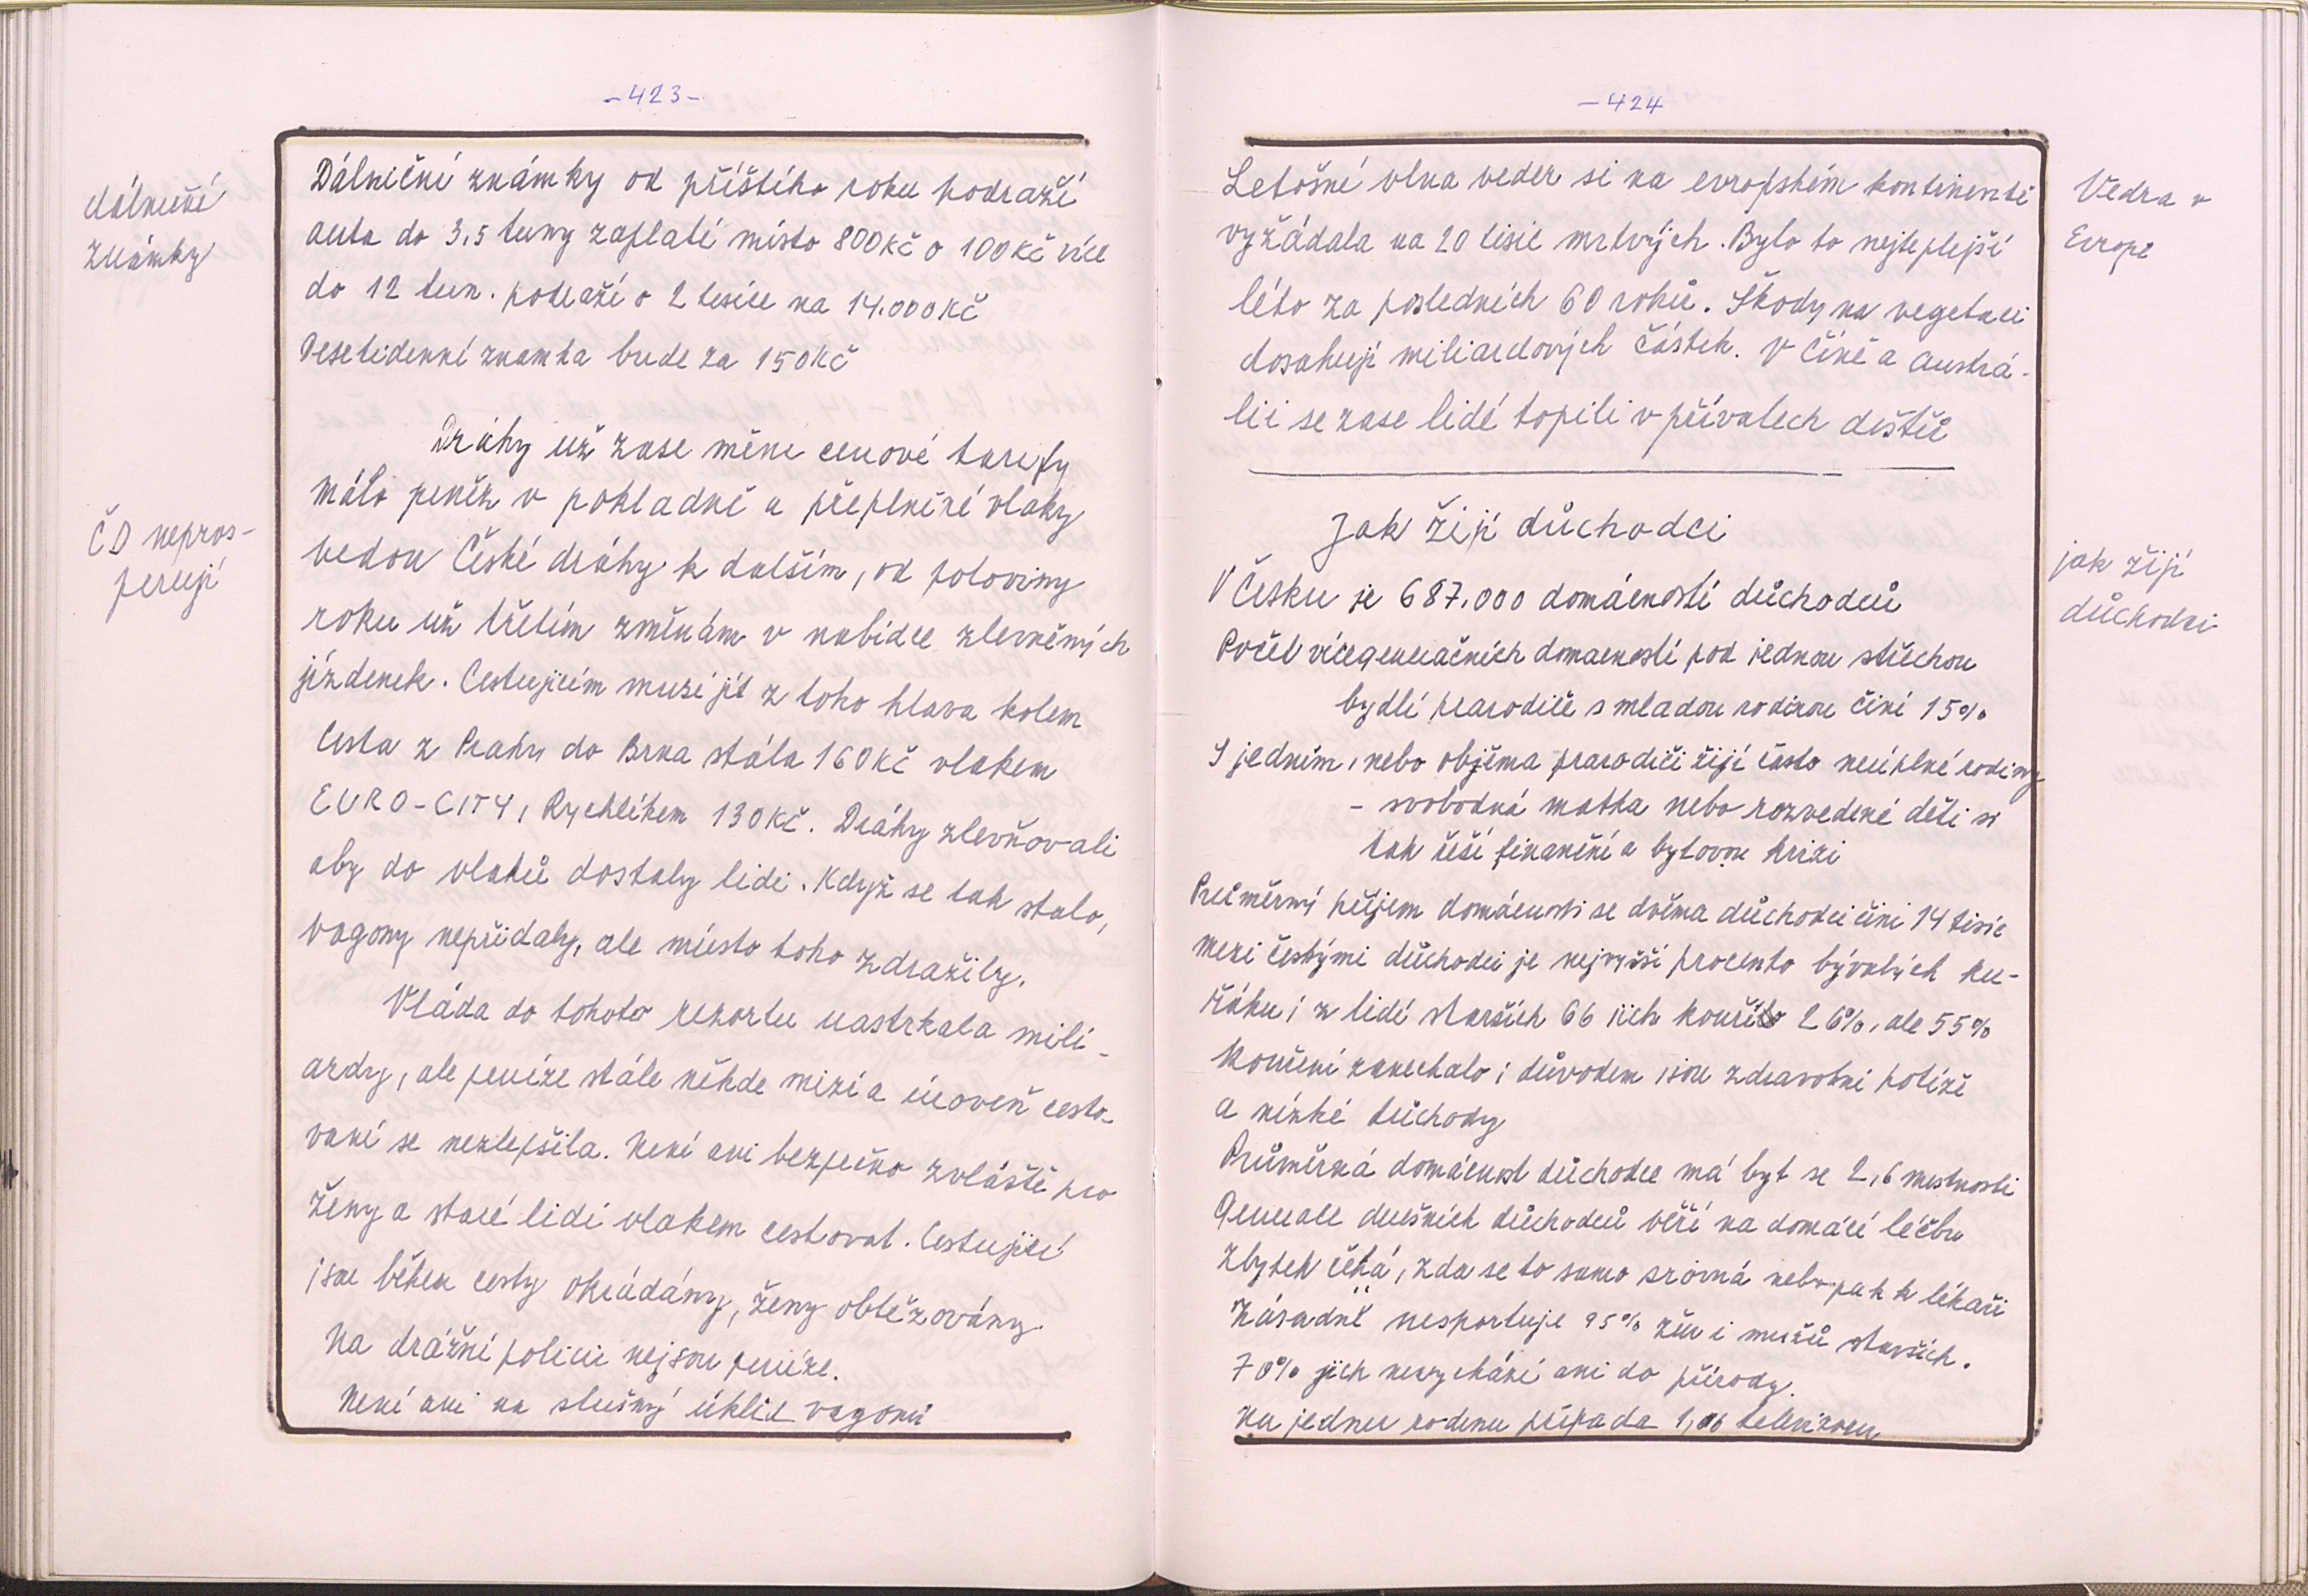 -423-
dálniční
známky
Dálniční známky od příštího roku podraží
auta do 3,5 tuny zaplatí místo 800 Kč o 100 Kč více
do 12 tun. podraží o 2 tisíce na 14.000 Kč
Desetidenní znamka bude za 150 Kč
ČD nepros-
perují
Dráhy už zase mění cenové tarify
Málo peněz v pokladně a přeplněné vlaky
vedou České dráhy k dalším, od poloviny
roku už třetím změnám v nabídce zlevněných
jízdenek. Cestujícím musí jít z toho hlava kolem
Cesta z Prahy do Brna stála 160 Kč vlakem
EURO-CITY, Rychlíkem 130 Kč. Dráhy zlevňovali
aby do vlaků dostaly lidi. Když se tak stalo,
vagony nepřidaly, ale místo toho zdražily.
Vláda do tohoto rezortu nastrkala mili-
ardy, ale peníze stále někde mizí a úroveň cesto-
vání se nezlepšila. Není ani bezpečno zvláště pro
ženy a staré lidi vlakem cestovat. Cestující
jsou během cesty okrádány, ženy obtěžovány.
Na drážní policii nejsou peníze.
Není ani na slušný úklid vagonů
-424
Letošní vlna veder si na evropském kontinentě
vyžádala na 20 tisíc mrtvých. Bylo to nejteplejší
léto za posledních 60 roků. Škody na vegetaci
dosahují miliardových částek. V Číně a Austrá-
lii se zase lidé topili v přívalech dešťů
Vedra v
Evropě
Jak žijí důchodci
jak žijí
důchodci
V Česku je 687.000 domácností důchodců
Počet vícegeneračních domacností pod jednou střechou
bydlí prarodiče s mladou rodinou činí 15%
S jedním, nebo oběma prarodiči žijí často neúplné rodiny
- svobodná matka nebo rozvedené děti si
tak řeší finanční a bytovou krizi
Průměrný příjem domácnosti se dvěma důchodci činí 14 tisíc
mezi českými důchodci je nejvyšší procento bývalých ku-
řáků; z lidí starších 66 jich kouřilo 26%, ale 55%
kouření zanechalo; důvodem jsou zdravotní potíže
a nízké důchody
Průměrná domácnost důchodce má byt se 2,6 mestnosti
Generace dnešních důchodců věří na domácí léčbu
zbytek čeká, zda se to samo srovná nebo pak k lékaři
Zásadně nesportuje 95% žen i mužů starších.
70% jich nevychází ani do přírody.
Na jednu rodinu připada 1,06 televizoru